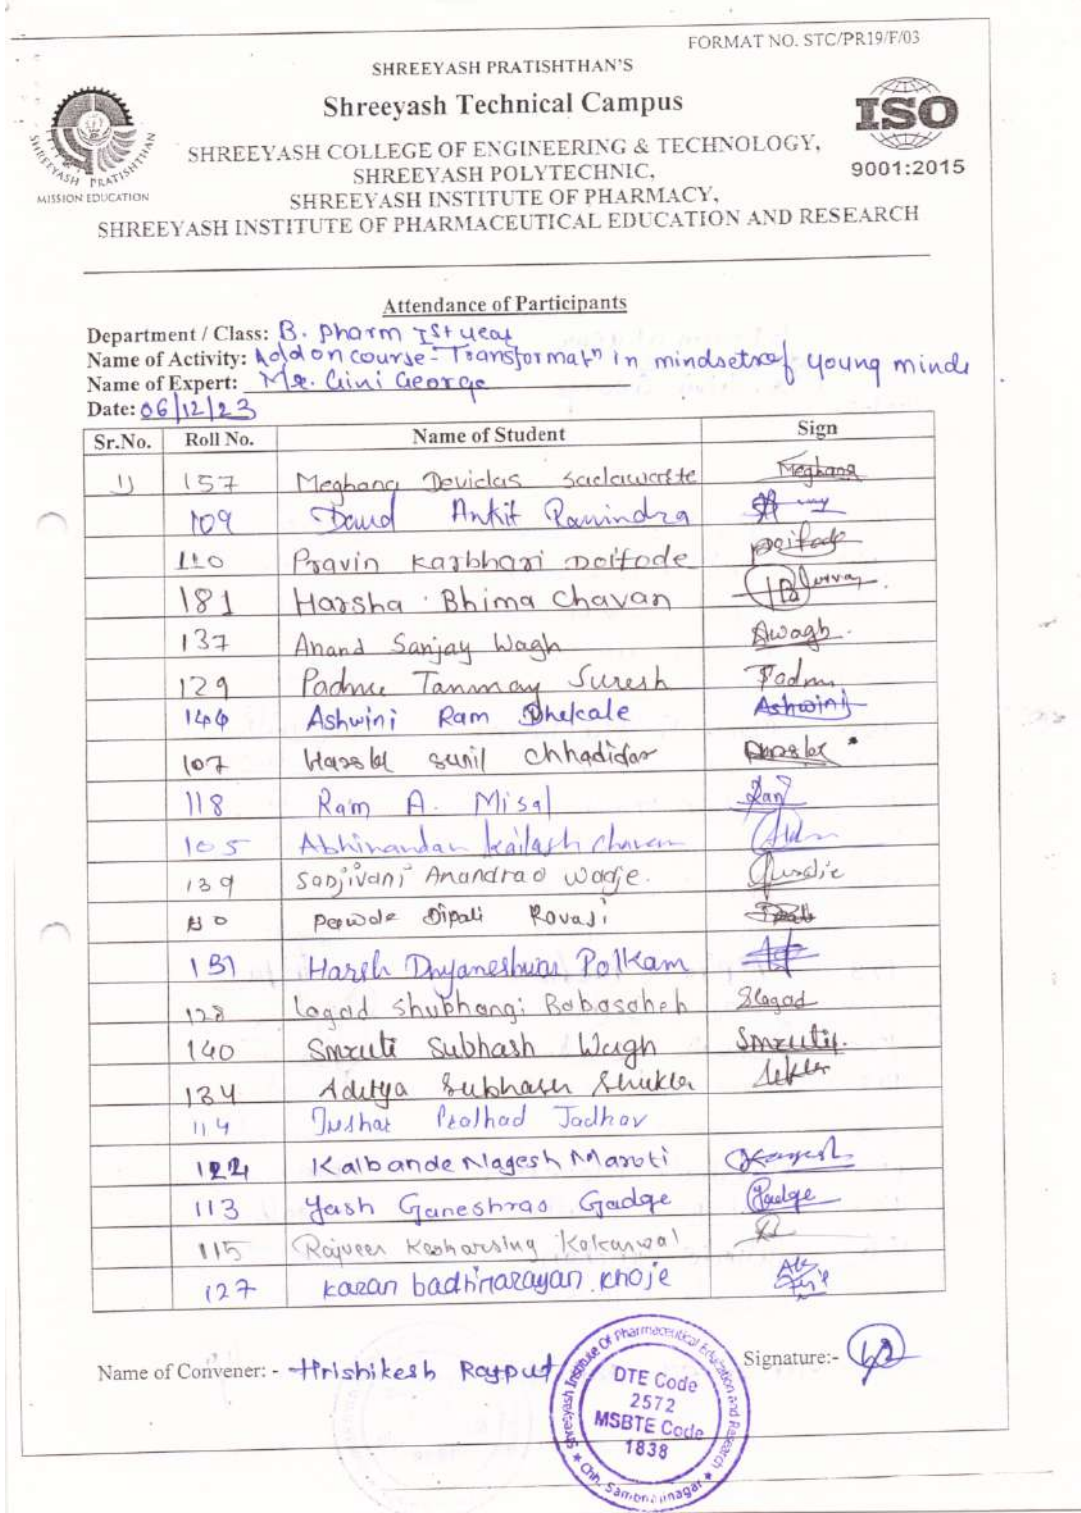 FORMAT NO. STC/PR19/F/03
SHREEYASH PRATISHTHAN'S
Shreeyash Technical Campus
SHREEYASH COLLEGE OF ENGINEERING & TECHNOLOGY,
SHREEYASH POLYTECHNIC,
SHREEYASH INSTITUTE OF PHARMACY,
SHREEYASH INSTITUTE OF PHARMACEUTICAL EDUCATION AND RESEARCH
SHREEYASH PRATISHTHAN
MISSION EDUCATION
ISO
9001:2015
Attendance of Participants
Department / Class: B. Pharm Ist year
Name of Activity: Add on course - Transformatn in mindsets of young minds
Name of Expert: Mr. Gini George
Date: 06/12/23
Sr.No. Roll No. Name of Student Sign
1) 157 Meghana Devidas Sadawarte Meghana
109 Daud Ankit Ravindra
110 Pravin Karbhari Doifode Doifode
181 Harsha Bhima Chavan
137 Anand Sanjay Wagh Awagh
129 Padme Tanmay Suresh Padm
144 Ashwini Ram Dhekale Ashwini
107 Harshal sunil Chhadidar
118 Ram A. Misal Ram
105 Abhinandan Kailash Chavan
139 Sanjivani Anandrao wagje.
Dipali Ravaji
131 Harsh Dnyaneshwar Polkam
128 Lagad Shubhangi Babasaheb Slagad
140 Smruti Subhash Wagh Smruti
134 Aditya Subhash Shukla
114 Tushar Pralhad Jadhav
122 Kalbande Nagesh Maroti
113 Yash Ganeshrao Gadge Gadge
115 Rajveer Kesharsing Kakarwal
127 karan badrinarayan khoje
Name of Convener: - Hrishikesh Rajput
Signature:-
Shreeyash Institute Of Pharmaceutical Education and Research
DTE Code
2572
MSBTE Code
1838
Chh. Sambhajinagar